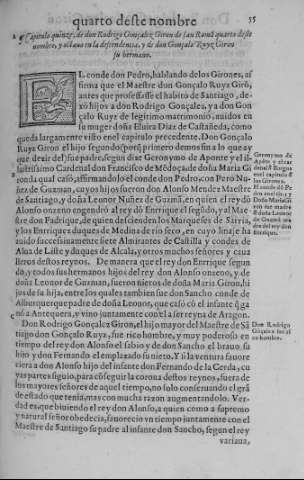 quarto deste nombre 35
Capitulo quinze, de don Rodrigo Gonçalez Giron de San Roman quarto deste
nombre, y de la descendencia, y de don Gonçalo Ruyz Giron
su hermano.
EL conde don Pedro, hablando de los Girones, a
firma que el Maestre don Gonçalo Ruya Girõ,
antes que professasse el habito de Santiago, de
xò hijos a don Rodrigo Gonçalez, y a don Gon
çalo Ruya de legitimo matrimonio, nuidos en
la muger doña Eluira Diaz de Castañeda, como
queda largamente visto en el capitulo precedente. Don Gonçalo
Ruya Giron el hijo segundo (porq primero demos fin a lo que ay
que dezir del) fue padre, segun dize Geronymo de Aponte y el il
lustrissimo Cardenal don Francisco de Mēdoça, de doña Maria Gi
rona qual caso, affirmandolo el conde don Pedro, con Pero Nu-
ñez de Guzman, cuyos hijos fueron don Alonso Mendez Maestre
de Santiago, y doña Leonor Nuñez de Guzmā, en quien el rey dõ
Alonso onzeno engendrò al rey dō Enrrique el segūdo, y al Maes
tre don Fadrique, de quien descienden los Marqueses de Sarria,
y los Enrriquez duques de Medina de rio seco, en cuyo linaje ha
auido successiuamente siete Almirantes de Castilla, y condes de
Alua de Liste y duques de Alcala, y otros muchos señores y caua
lleros destos reynos. De manera que el rey don Enrrique segun
do, y todos sus hermanos hijos del rey don Alonso onzeno, y de
doña Leonor de Guzman, fueron nietos de doña Maria Giron, hi
jos de su hija, entre los quales tambien fue don Sancho conde de
Alburquerque padre de doña Leonor, que casò cō el infante q ga
nò a Antequera, y vino juntamente con ella ser reyna de Aragon.
Don Rodrigo Gonçalez Giron, el hijo mayor del Maestre de Sā
tiago don Gonçalo Ruya, fue rico hombre, y muy poderoso en
tiempo del rey don Alonso el sabio y de don Sancho el brauo su
hijo y don Fernando el emplazado su nieto. Y si la ventura fauore
ciera a don Alonso hijo del infante don Fernando de la Cerda, cu
yas partes siguio, para cōseguir la corona destos reynos, fuera de
los mayores señores de aquel tiempo, no solo conseruando el grā
de estado que tenia, mas con mucha razon augmentandolo. Ver-
dad es, que biuiendo el rey don Alonso, a quien como a supremo
y natural señor obedecia, fauorecio vn tiempo juntamente con el
Maestre de Santiago su padre al infante don Sancho, segun el rey
variaua,
Geronymo de
El conde dõ Pe
Enrrique.
Don Rodrigo